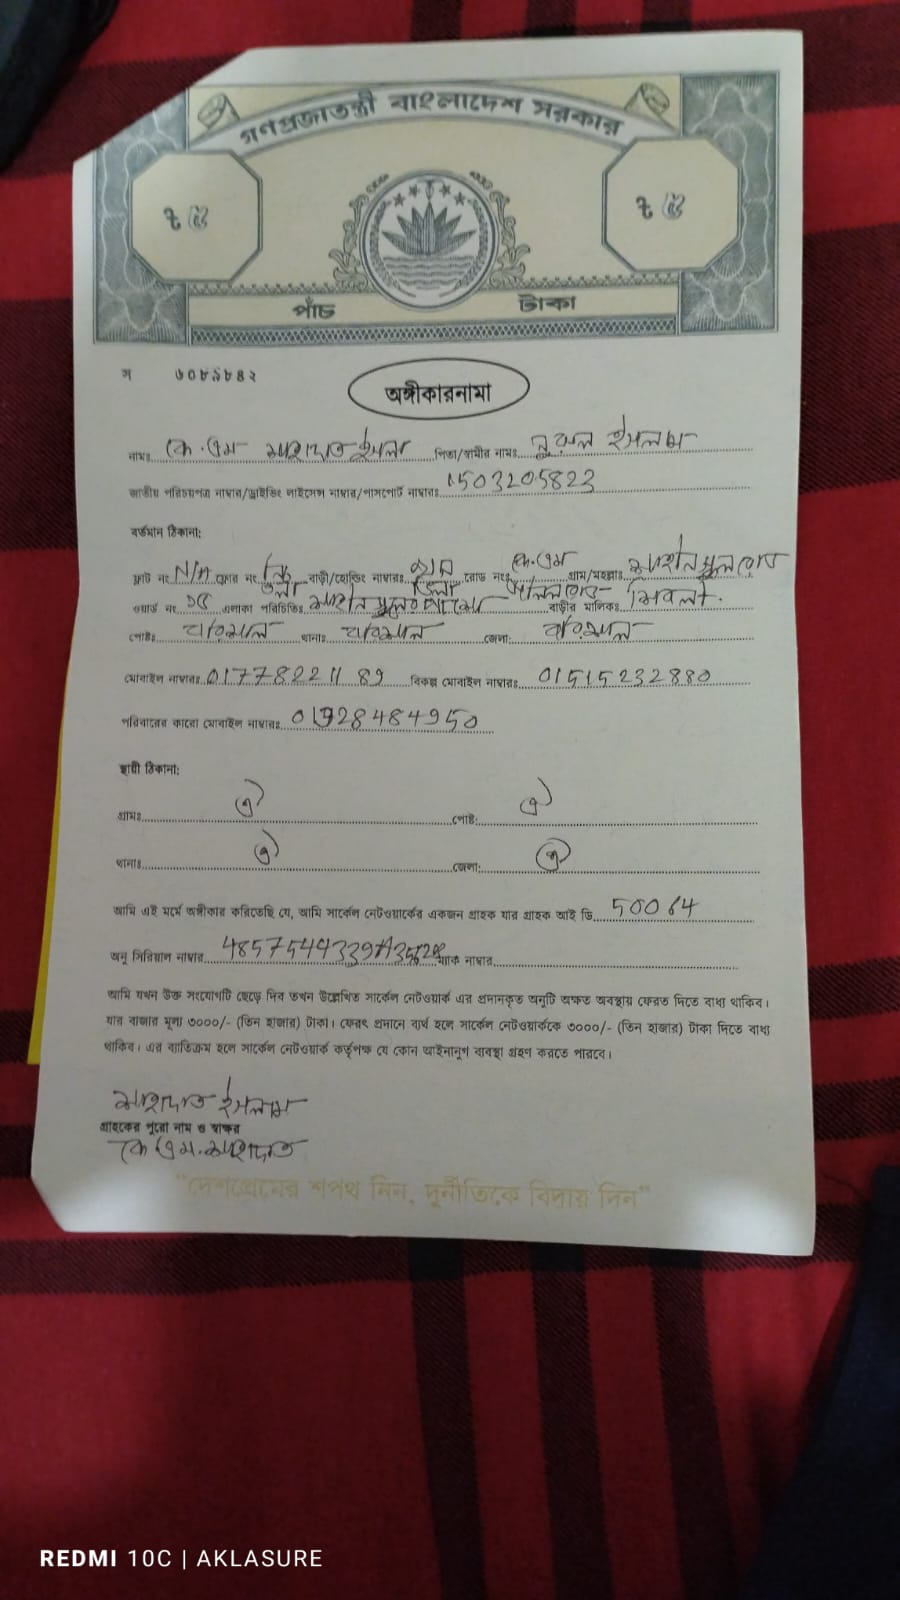 গণপ্রজাতন্ত্রী বাংলাদেশ সরকার
৳ ৫ ৳ ৫
পাঁচ টাকা
গ ৬০৮৯৮৪২
অঙ্গীকারনামা
নামঃ কে.এম পিতা/স্বামীর নামঃ ইসলাম
জাতীয় পরিচয়পত্র নাম্বার/ড্রাইভিং লাইসেন্স নাম্বার/পাসপোর্ট নাম্বারঃ 1503205823
বর্তমান ঠিকানা:
ফ্লাট নং N/A ফ্লোর নং বাড়ী/হোল্ডিং নাম্বারঃ রোড নংঃ গ্রাম/মহল্লাঃ
ওয়ার্ড নং এলাকা পরিচিতিঃ বাড়ীর মালিকঃ
পোষ্টঃ বরিশাল থানাঃ বরিশাল জেলা: বরিশাল
মোবাইল নাম্বারঃ 01778221189 বিকল্প মোবাইল নাম্বারঃ 01515232880
পরিবারের কারো মোবাইল নাম্বারঃ
স্থায়ী ঠিকানা:
গ্রামঃ ঐ পোষ্ট: ঐ
থানাঃ ঐ জেলা: ঐ
আমি এই মর্মে অঙ্গীকার করিতেছি যে, আমি সার্কেল নেটওয়ার্কের একজন গ্রাহক যার গ্রাহক আই ডি 50064
অনু সিরিয়াল নাম্বার ম্যাক নাম্বার
আমি যখন উক্ত সংযোগটি ছেড়ে দিব তখন উল্লেখিত সার্কেল নেটওয়ার্ক এর প্রদানকৃত অনুটি অক্ষত অবস্থায় ফেরত দিতে বাধ্য থাকিব।
যার বাজার মূল্য ৩০০০/- (তিন হাজার) টাকা। ফেরৎ প্রদানে ব্যর্থ হলে সার্কেল নেটওয়ার্ককে ৩০০০/- (তিন হাজার) টাকা দিতে বাধ্য
থাকিব। এর ব্যতিক্রম হলে সার্কেল নেটওয়ার্ক কর্তৃপক্ষ যে কোন আইনানুগ ব্যবস্থা গ্রহণ করতে পারবে।
শাহাদাত ইসলাম
গ্রাহকের পুরো নাম ও স্বাক্ষর
কে এম. শাহাদাত
"দেশপ্রেমের শপথ নিন, দুর্নীতিকে বিদায় দিন"
REDMI 10C | AKLASURE